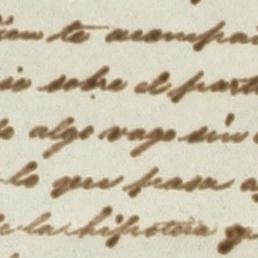 te acompañ
sobre el part
algo vago sin
lo que pasa a
de la hipotesis qu